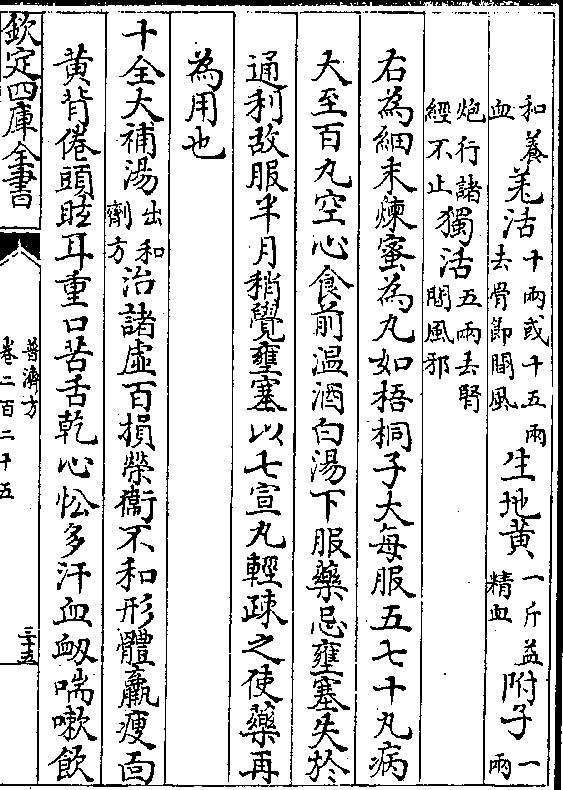 和養血羌活十兩或十五兩去骨節間風生地黃一斤益精血附子一兩
炮行諸經不止獨活五兩去腎間風邪
右為細末煉蜜為丸如梧桐子大每服五七十丸病
大至百丸空心食前温酒白湯下服藥忌壅塞失於
通利故服半月稍覺壅塞以七宣丸輕疎之使藥再
為用也
十全大補湯出和劑方治諸虛百損榮衞不和形體羸瘦面
黃背倦頭眩耳重口苦舌乾心忪多汗血衂喘嗽飲
欽定四庫全書
普濟方
卷二百二十五
三十五